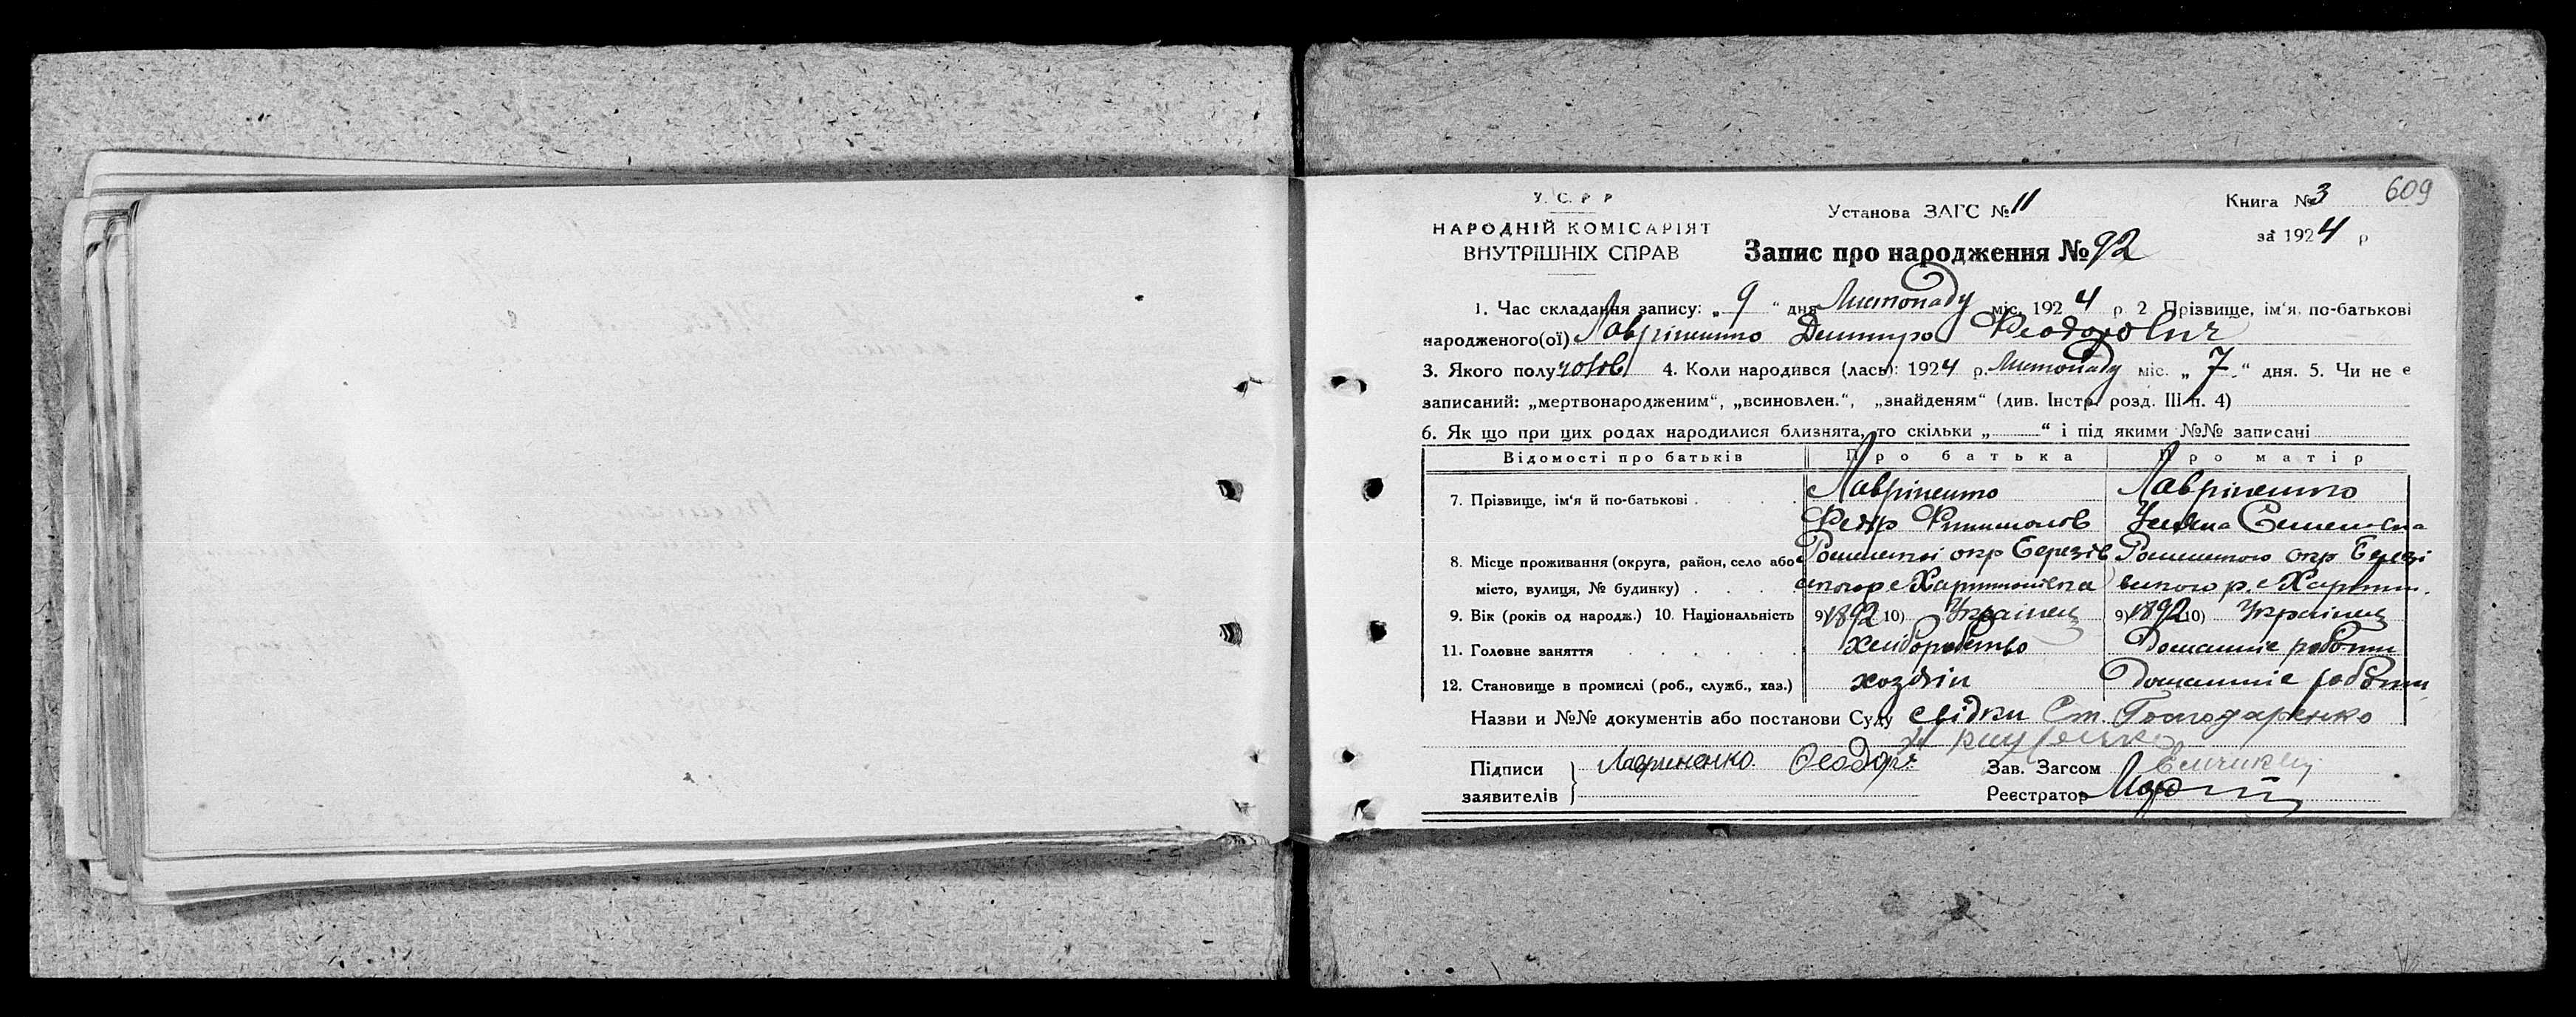 609
У. С. Р Р
НАРОДНІЙ КОМІСАРІЯТ
ВНУТРІШНІХ СПРАВ
Установа ЗАГС № 11
Книга № 3
за 1924 р
Запис про народження № 92
1. Час складання запису: „ 9 “ дня Листопаду міс. 1924 р. 2 Прізвище, ім'я, по-батькові
народженого(ої) Лавріненко Дмитро Феодорович
3. Якого полу чолов 4. Коли народився (лась): 1924 р. Листопаду міс. „ 7 “ дня. 5. Чи не є
записаний: „мертвонародженим“, „всиновлен.“, „знайденям“ (див. Інстр. розд. III п. 4)
6. Як що при цих родах народилися близнята, то скільки „ “ і під якими №№ записані
Відомості про батьків Про батька Про матір
7. Прізвище, ім'я й по-батькові Лавріненко Лавріненко
Федір Уляна Семеновна
8. Місце проживання (округа, район, село або Роменської окр Березів Роменського окр Березі
місто, вулиця, № будинку) ського р с Харитонівка вського р. с Харитон.
9. Вік (років од народж.) 10. Національність 9) 1892 10) Українец 9) 1892 10) Українец
11. Головне заняття хліборобство Домашніе роботи
12. Становище в промислі (роб., служб., хаз.) хозяін Домашніе роботи
Назви и №№ документів або постанови Суду свідки Ст.
Підписи Лавриненко Феодоръ Зав. Загсом
заявителів Реєстратор